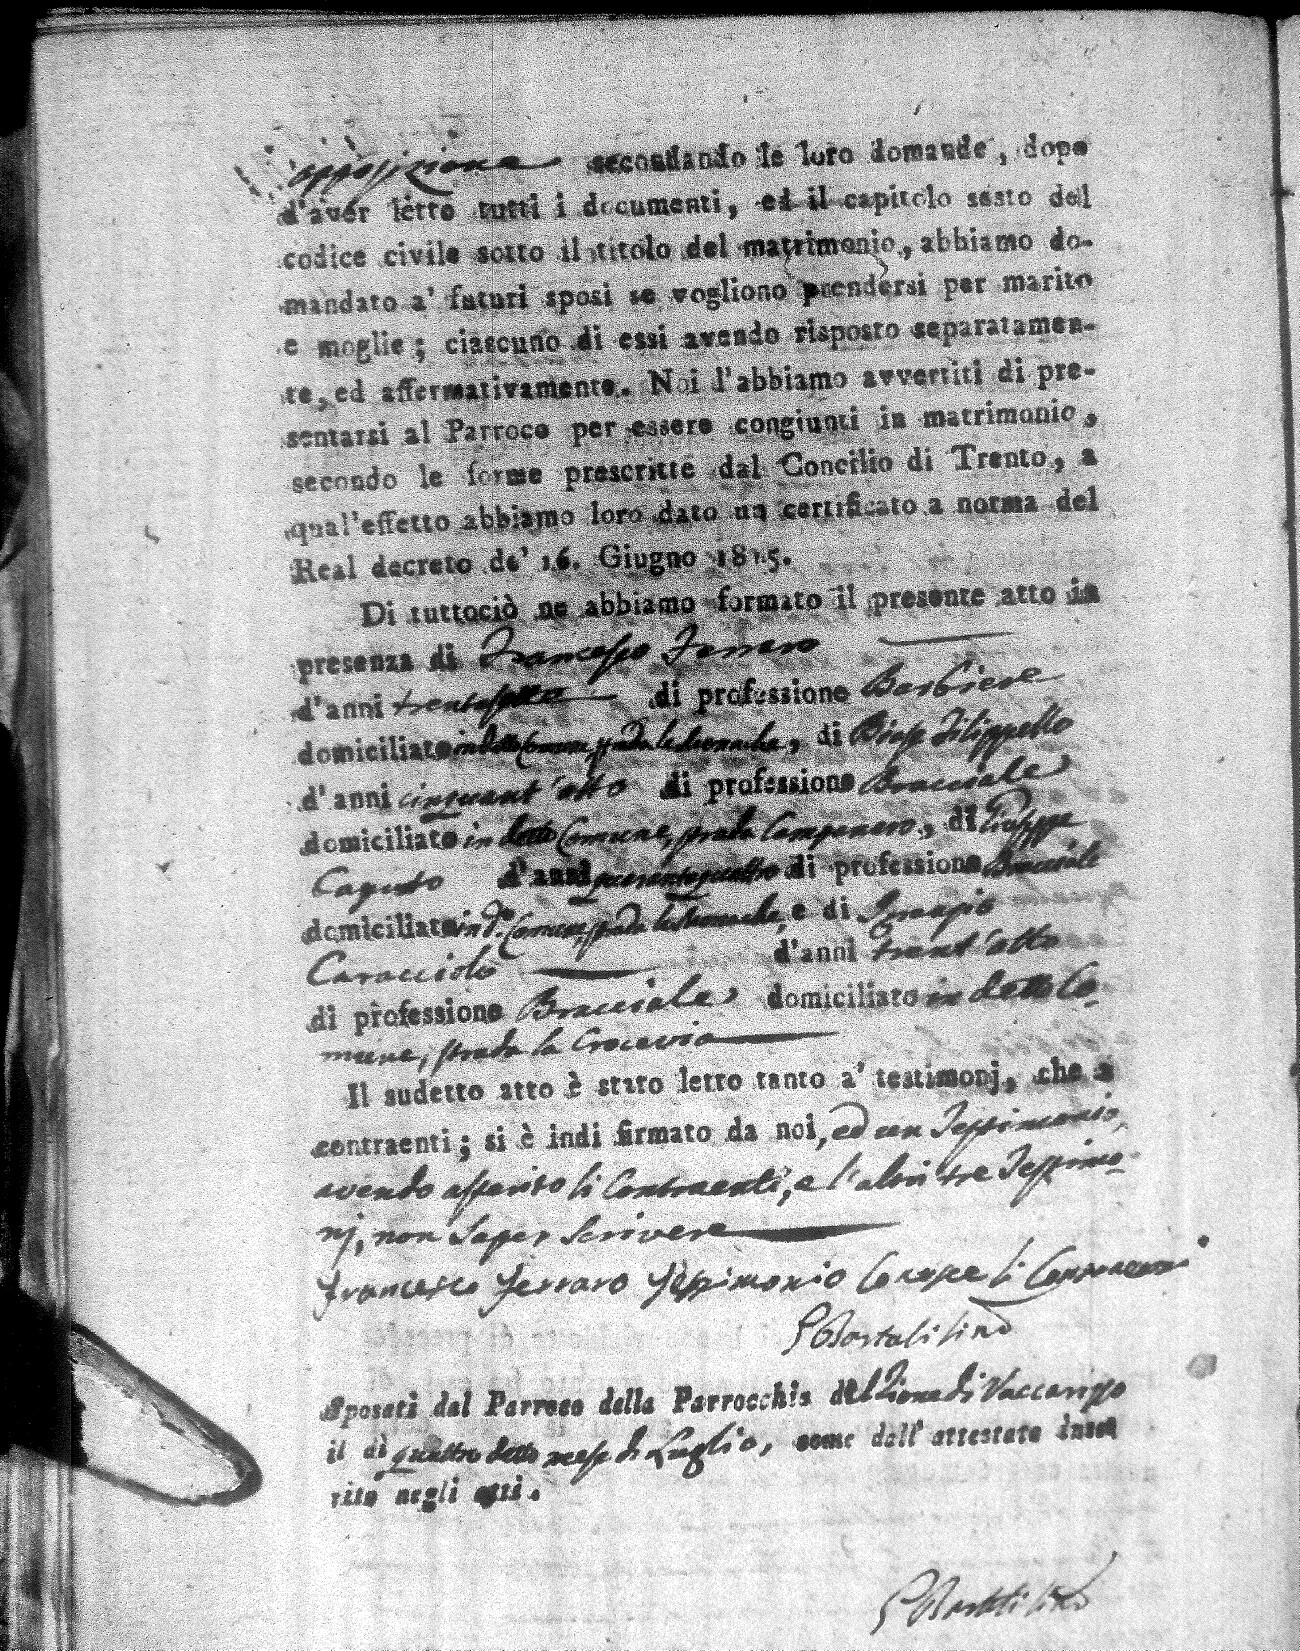 opposizione secondando le loro domande, dopo
d'aver letto tutti i documenti, ed il capitolo sesto del
codice civile sotto il titolo del matrimonio, abbiamo do-
mandato a' futuri sposi se vogliono prendersi per marito
e moglie; ciascuno di essi avendo risposto separatamen-
te, ed affermativamente. Noi l'abbiamo avvertiti di pre-
sentarsi al Parroco per essere congiunti in matrimonio,
secondo le forme prescritte dal Concilio di Trento, a
qual'effetto abbiamo loro dato un certificato a norma del
Real decreto de' 16. Giugno 1815.
Di tuttociò ne abbiamo formato il presente atto in
presenza di Francesco Ferraro
d'anni trentasette di professione Barbiere
domiciliato in detto Comune, strada , di Filippello
d'anni cinquant'otto di professione Bracciale
domiciliato in detto Comune, strada Campanaro, di Giuseppe
Caputo d'anni quarantaquattro di professione Bracciale
domiciliato in d.o Comune, strada , e di Ignazio
Caracciolo d'anni trent'otto
di professione Bracciale domiciliato in detto Co-
mune, strada la Crocevia
Il sudetto atto è stato letto tanto a' testimonj, che a
contraenti; si è indi firmato da noi, ed un Testimonio,
avendo asserito li Contraenti, e l'altri tre Testimo-
nj, non saper scrivere
Francesco Ferraro Testimonio Conosce li Contraenti

Sposati dal Parroco della Parrocchia di Vaccarizzo
il dì quattro detto mese di Luglio, come dall'attestato inse
rito negli atti.